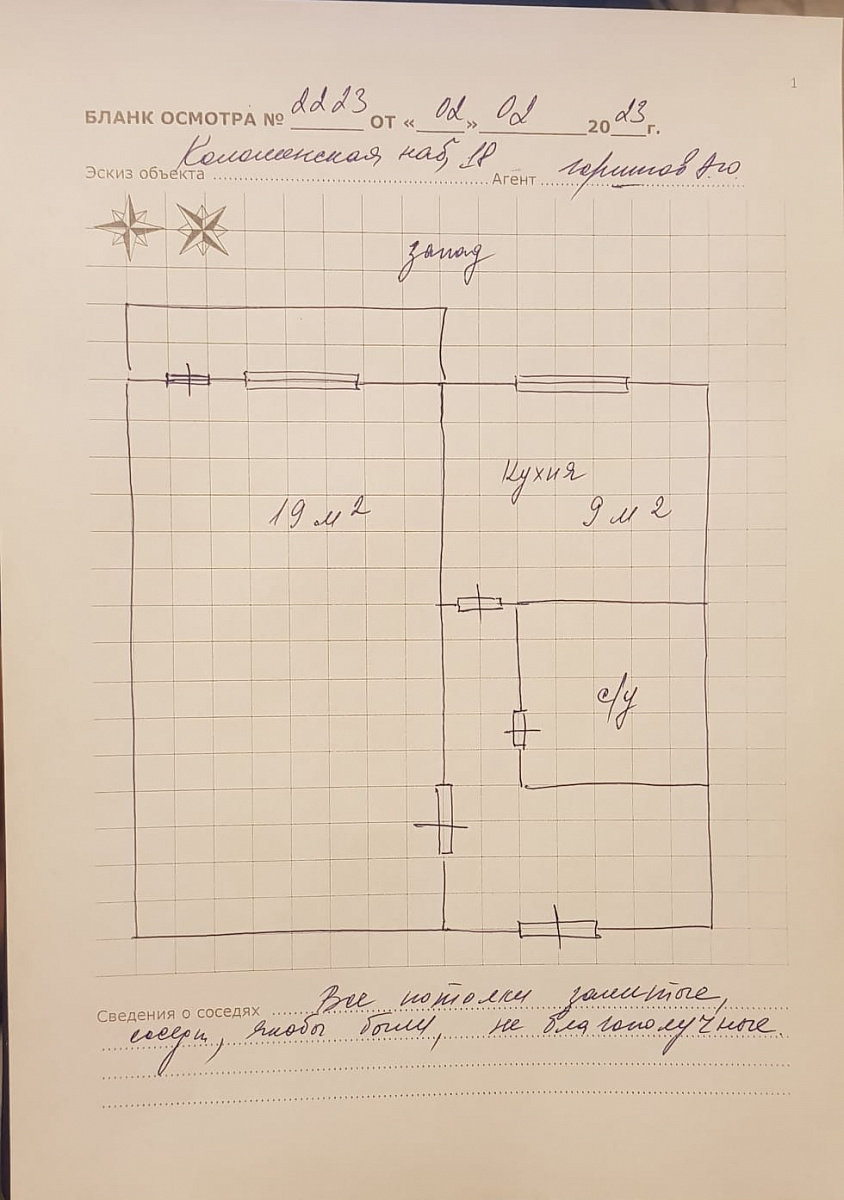 1
БЛАНК ОСМОТРА № 2223 ОТ «02» 02 2023г.
Эскиз объекта Коломенская наб, 18 Агент Горшков А.Ю.
запад
Кухня
19 м2 9 м2
с/у
Сведения о соседях Все потолки залитые,
соседи, якобы были, не благополучные.